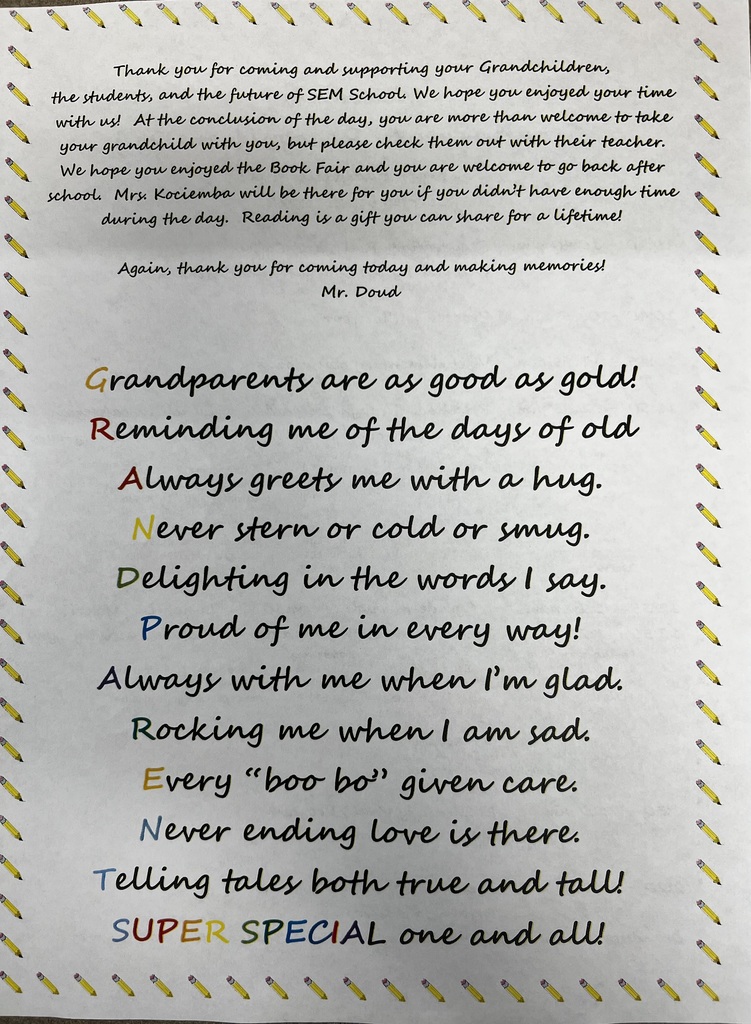 Thank you for coming and supporting your Grandchildren,
the students, and the future of SEM School. We hope you enjoyed your time
with us! At the conclusion of the day, you are more than welcome to take
your grandchild with you, but please check them out with their teacher.
We hope you enjoyed the Book Fair and you are welcome to go back after
school. Mrs. Kociemba will be there for you if you didn't have enough time
during the day. Reading is a gift you can share for a lifetime!
Again, thank you for coming today and making memories!
Mr. Doud
Grandparents are as good as gold!
Reminding me of the days of old
Always greets me with a hug.
Never stern or cold or smug.
Delighting in the words I say.
Proud of me in every way!
Always with me when I'm glad.
Rocking me when I am sad.
Every "boo bo" given care.
Never ending love is there.
Telling tales both true and tall!
SUPER SPECIAL one and all!